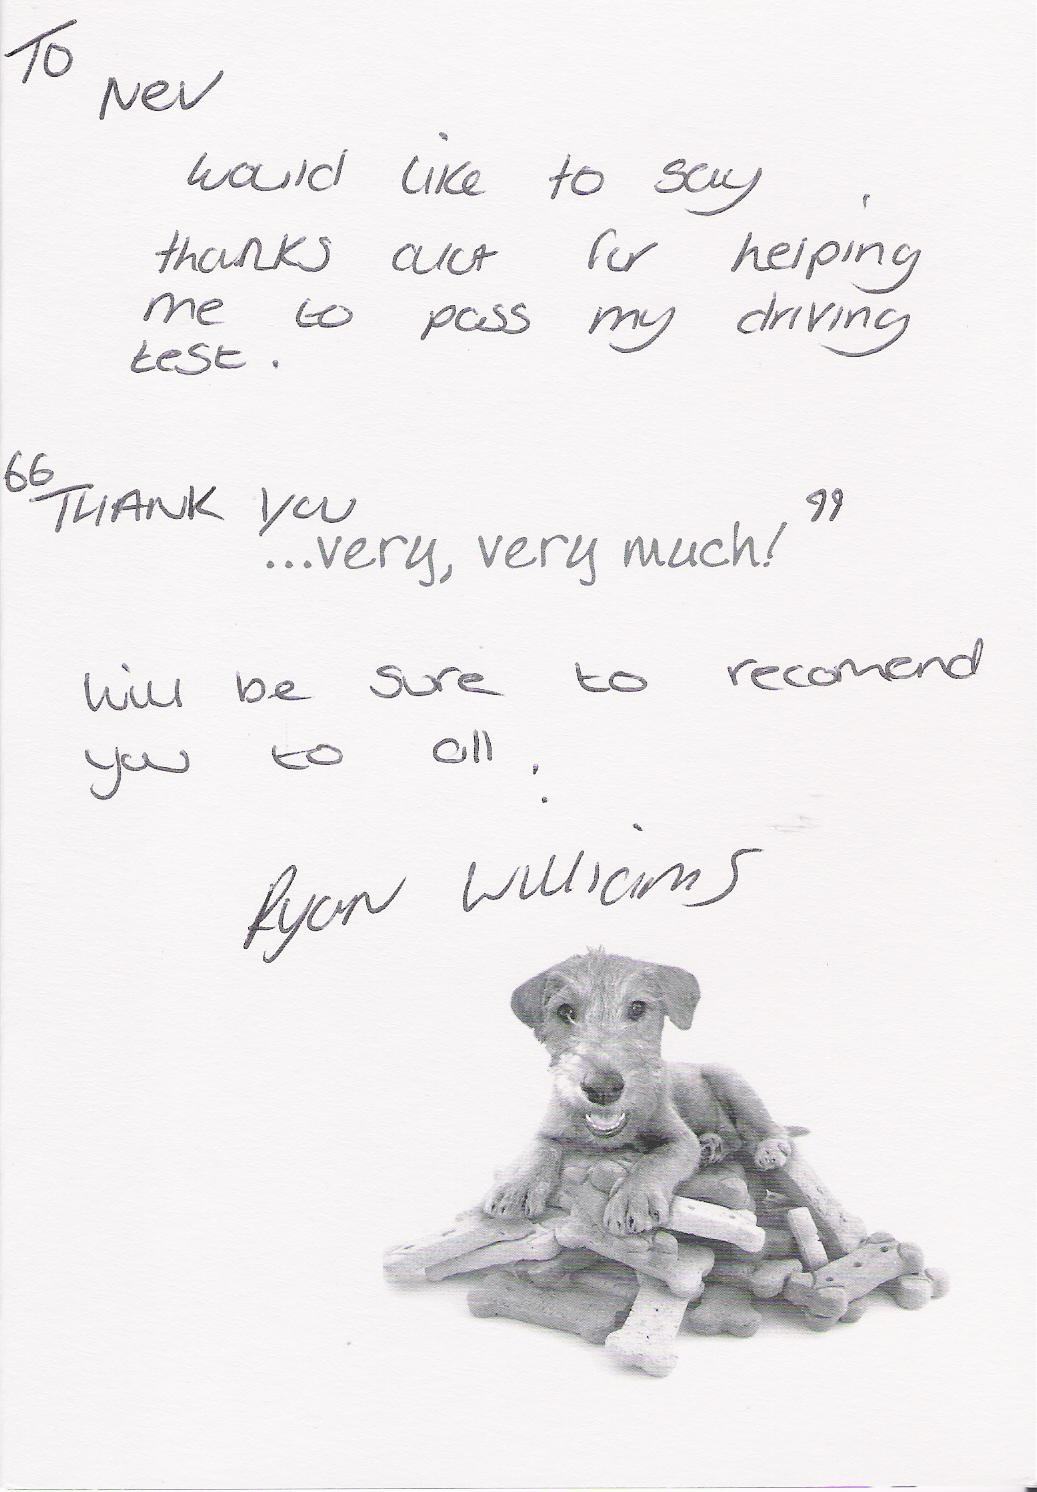 To
Nev
would like to say
thanks alot for helping
me to pass my driving
test.
"THANK YOU
...very, very much!"
Will be sure to recomend
you to all.
Ryan Williams